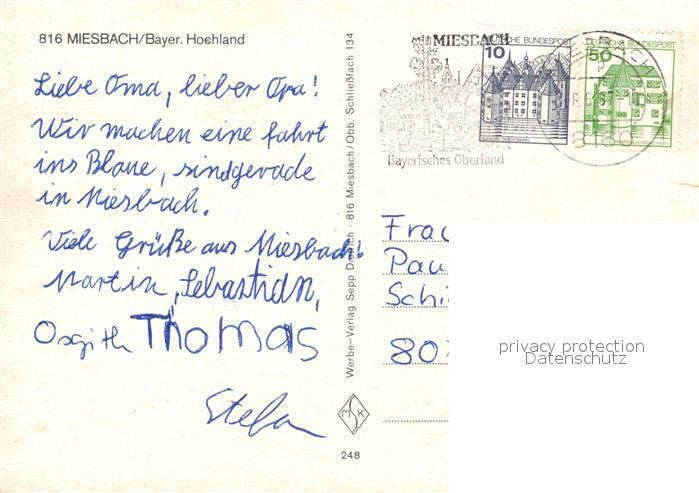 816 MIESBACH/Bayer. Hochland
Liebe Oma, lieber Opa!
Wir machen eine fahrt
ins Blaue, sind gerade
in Miesbach.
Viele Grüße aus Miesbach!
Martin, Sebastian,
Osgith Thomas
Stefan
Werbe-Verlag Sepp Dietrich - 816 Miesbach/Obb. Schließfach 134
MSK
248
MIESBACH
Bayerisches Oberland
10
DEUTSCHE BUNDESPOST
50
DEUTSCHE BUNDESPOST
8160
Frau
Pau
Schi
80
privacy protection
Datenschutz